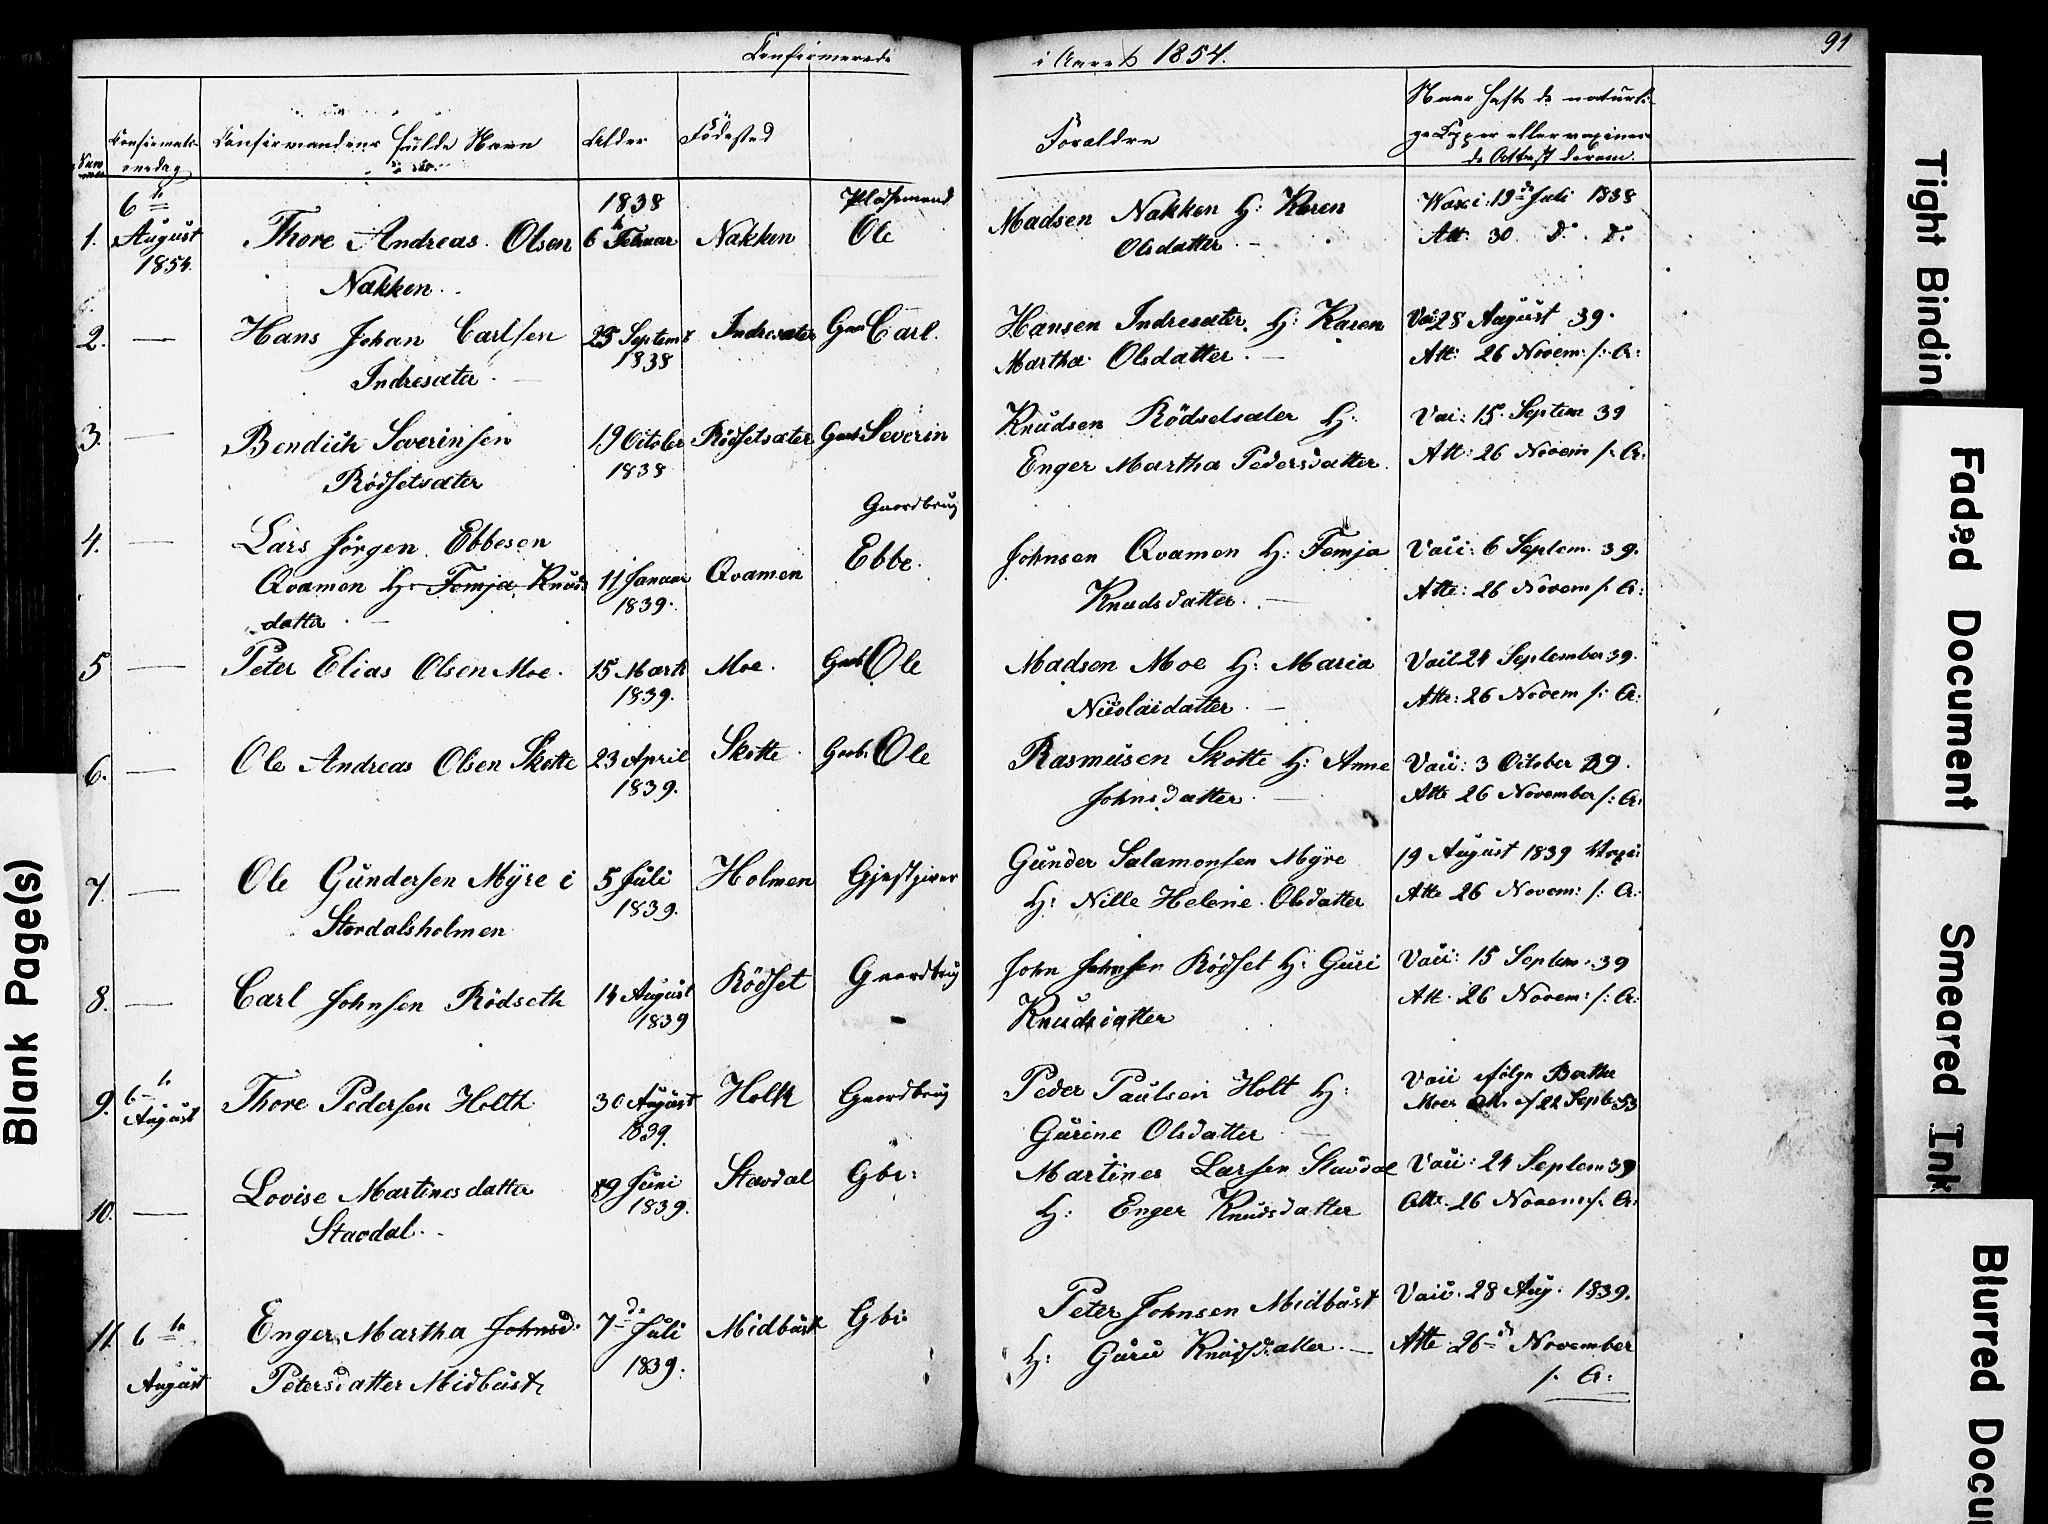 Confirmerede i Aaret 1854.
91
Nummer
Confirmations-
dag
Confirmandens fulde Navn
Alder
Födested
Forældre
Naar hafte de naturli-
ge Kopper eller vaxinere-
de Attest derom.
1. 6te August 1854. Thore Andreas Olsen 1838 6te Februar Nakken Pladsmand Ole Madsen Nakken H: Karen Vaxi: 19de Juli 1838
Nakken. Olsdatter. Att: 30. d. d.
2. — Hans Johan Carlsen 25 Septemb Indresæter Carl Hansen Indresæter H: Karen Vaii 28 August 39.
Indresæter. 1838 Martha Olsdatter. Att: 26 Novem: s: A:
3. — Bendich Severinsen 19 October Rödsetsæter Gaab Severin Knudsen Rödsetsæter H: Vai: 15. Septem 39
Rödsetsæter 1838 Enger Martha Pedersdatter. Att: 26 Novem s: A:
4. — Lars Jörgen Ebbesen Gaardbrug
Qvamen H: Femja Knuds 11 Januar Qvamen Ebbe. Johnsen Qvamen H: Femja Vaii: 6 Septem. 39.
datter. 1839. Knudsdatter. Atte: 26 Novem s: A:
5 — Peter Elias Olsen Moe. 15 Marts Moe. Gaab Ole Madsen Moe H: Maria Vaii 24 September 39.
1839. Nicolaidatter. Atte: 26 Novem s: A:
6. — Ole Andreas Olsen Skotte 23 April Skotte Gaab. Ole Rasmusen Skotte H: Anne Vaii: 3 October 39.
1839. Johnsdatter. Atte 26 November s: A:
7. — Ole Gundersen Myre i 5 Juli Holmen Gjestgiver Gunder Salamonsen Myre 19 August 1839 Vaxi:
Stordalsholmen 1839. H: Nille Helene Olsdatter Atte 26 Novem: s: A:
8. — Carl Johnsen Rödseth 14 August Rödset Gaardbrug John Johnsen Rödset H: Guri Vaii: 15 Septem. 39
1839 Knudsdatter Att. 26 Novem: s: A:
9. 6te August Thore Pedersen Holth 30 August Holth Gaardbrug Peder Paulsen Holt H: Vaii ifölge Berthe
1839. Gurine Olsdatter Moes Att. af 22 Septb. 53
10. — Lovise Martinesdatter 19 Juni Stavdal Gbr: Martines Larsen Stavdal Vaii: 24 Septem 39
Stavdal. 1839. H: Enger Knudsdatter Atte. 26 Novem s: A:
11. 6te August Enger Martha Johnsd: 7de Juli Midbust Gbr: Peter Johnsen Midbust Vaii. 28 Aug. 1839.
Petersdatter Midbust 1839. H: Guru Knudsdatter. — Atte 26de November
s. A:
Tight Bindin
Faded Document
Smeared Ink
Blurred Docu
Blank Page(s)